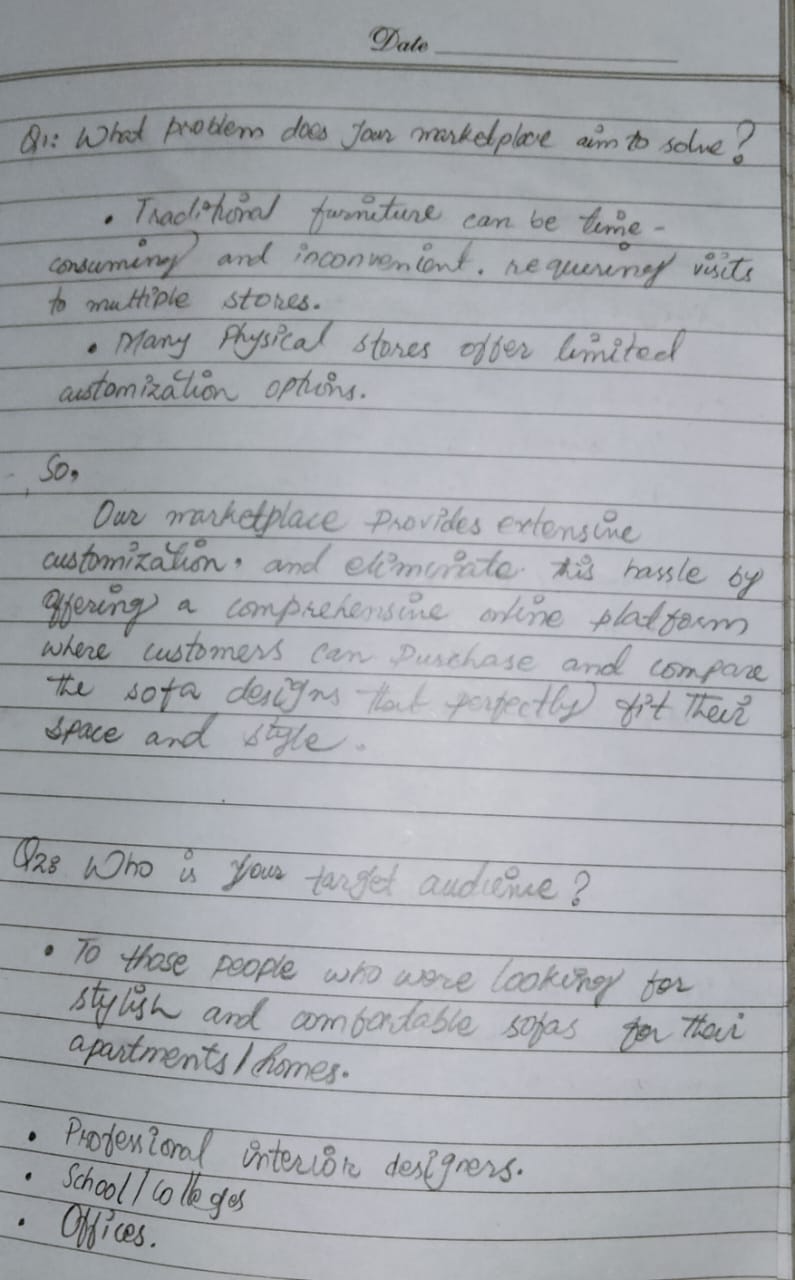 Date
Q1: What problem does your marketplace aim to solve?
• Traditional furniture can be time-
consuming and inconvenient. requering visits
to multiple stores.
• Many Physical stores offer limited
customization options.
So,
Our marketplace provides extensive
customization, and eliminate this hassle by
offering a comprehensive online platform
where customers can purchase and compare
the sofa designs that perfectly fit their
space and style.
Q2: Who is your target audience?
• To those people who were looking for
stylish and comfordable sofas for their
apartments/homes.
• Professional interior designers.
• School/colleges
• Offices.